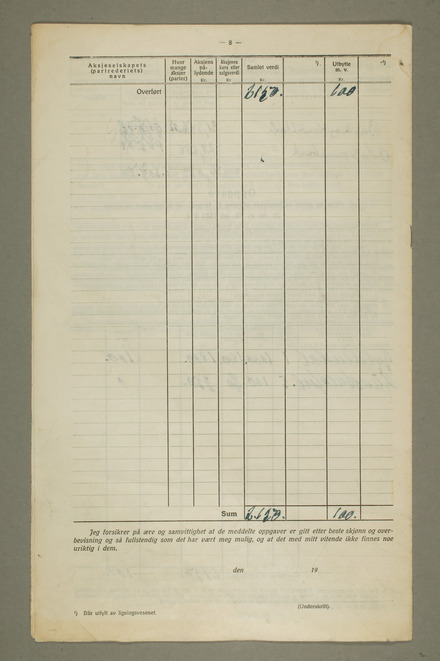 — 8 —
Aksjeselskapets (partrederiets) navn
Hvor mange aksjer (parter)
Aksjens pålydende Kr.
Aksjens kurs eller salgsverdi Kr.
Samlet verdi Kr.
¹).
Utbytte m. v. Kr.
Overført 2150. 100
Sum 2.150. 100.
Jeg forsikrer på ære og samvittighet at de meddelte oppgaver er gitt etter beste skjønn og over-
bevisning og så fullstendig som det har vært meg mulig, og at det med mitt vitende ikke finnes noe
uriktig i dem.
den 19
(Underskrift).
¹) Blir utfylt av ligningsvesenet.